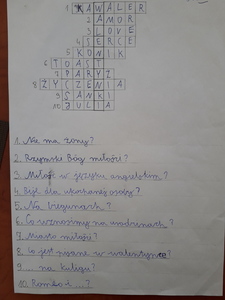 1 KAWALER
2 AMOR
3 LOVE
4 SERCE
5 KONIK
6 TOAST
7 PARYŻ
8 ŻYCZENIA
9 SANKI
10 JULIA
1. Nie ma żony?
2. Rzymski Bóg miłości?
3. Miłość w języku angielskim?
4. Być dla ukochanej osoby?
5. Na biegunach?
6. Co wznosimy na urodzinach?
7. Miasto miłości?
8. Co jest pisane w walentynce?
9. ... na kuligu?
10. Romeo i ...?